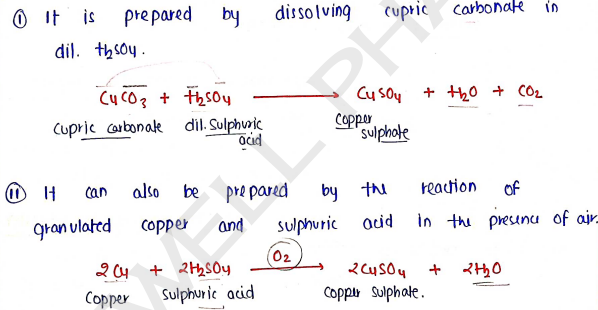 ① It is prepared by dissolving cupric carbonate in
dil. H₂SO₄.
CuCO₃ + H₂SO₄ ⟶ CuSO₄ + H₂O + CO₂
Cupric carbonate dil. Sulphuric acid Copper sulphate
⑪ It can also be prepared by the reaction of
granulated copper and sulphuric acid in the presence of air.
2Cu + 2H₂SO₄ —O₂⟶ 2CuSO₄ + 2H₂O
Copper Sulphuric acid Copper sulphate.